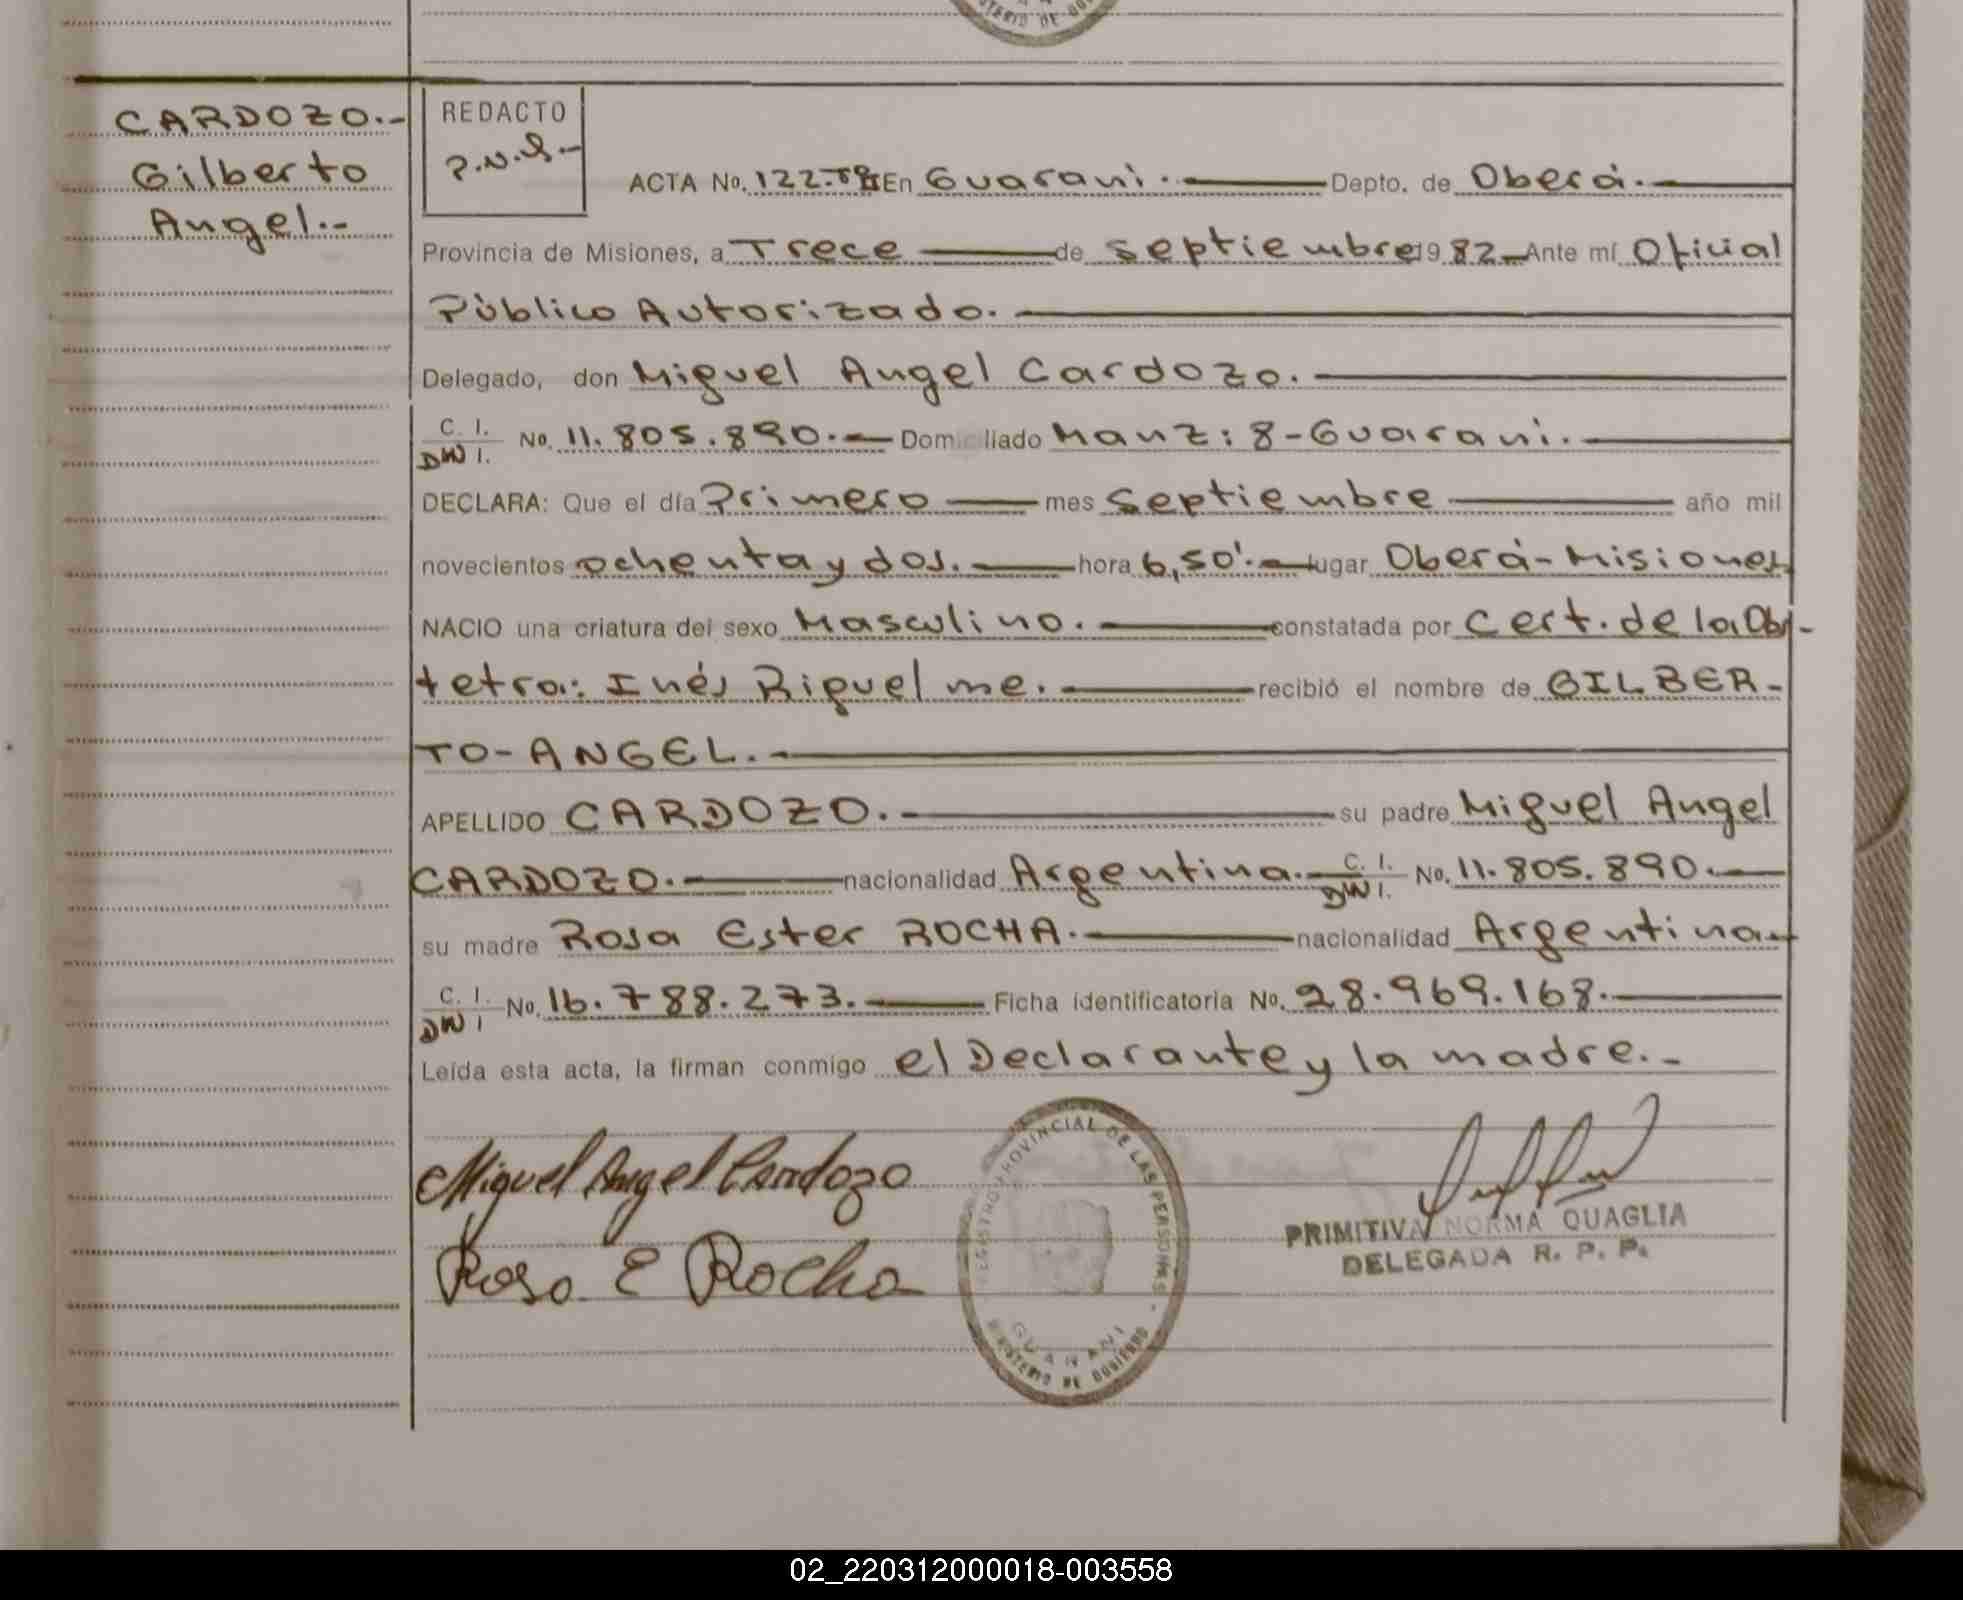 TERIO DE GOB
CARDOZO.-
Gilberto
Angel.-
REDACTO
P.N.Q.-
ACTA No. 122. En Guarani. Depto. de Oberá.
Provincia de Misiones, a Trece de septiembre 1982 Ante mí Oficial
Público Autorizado.
Delegado, don Miguel Angel Cardozo.
C. I.
DNI. No. 11.805.890.- Domiciliado Manz: 8-Guarani.
DECLARA: Que el día Primero mes septiembre año mil
novecientos ochenta y dos. hora 6,50'. lugar Oberá-Misiones
NACIO una criatura del sexo Masculino. constatada por Cert. de la Obs-
tetra: Inés Riquelme. recibió el nombre de GILBER-
TO-ANGEL.
APELLIDO CARDOZO. su padre Miguel Angel
CARDOZO. nacionalidad Argentina. C. I. DNI. No. 11.805.890.
su madre Rosa Ester ROCHA. nacionalidad Argentina
C. I.
DNI No. 16.788.273. Ficha identificatoria No. 28.969.168.
Leída esta acta, la firman conmigo el Declarante y la madre.-
Miguel Angel Cardozo
Rosa E Rocha
REGISTRO PROVINCIAL DE LAS PERSONAS
GUARANI
MINISTERIO DE GOBIERNO
PRIMITIVA NORMA QUAGLIA
DELEGADA R. P. P.
02_220312000018-003558